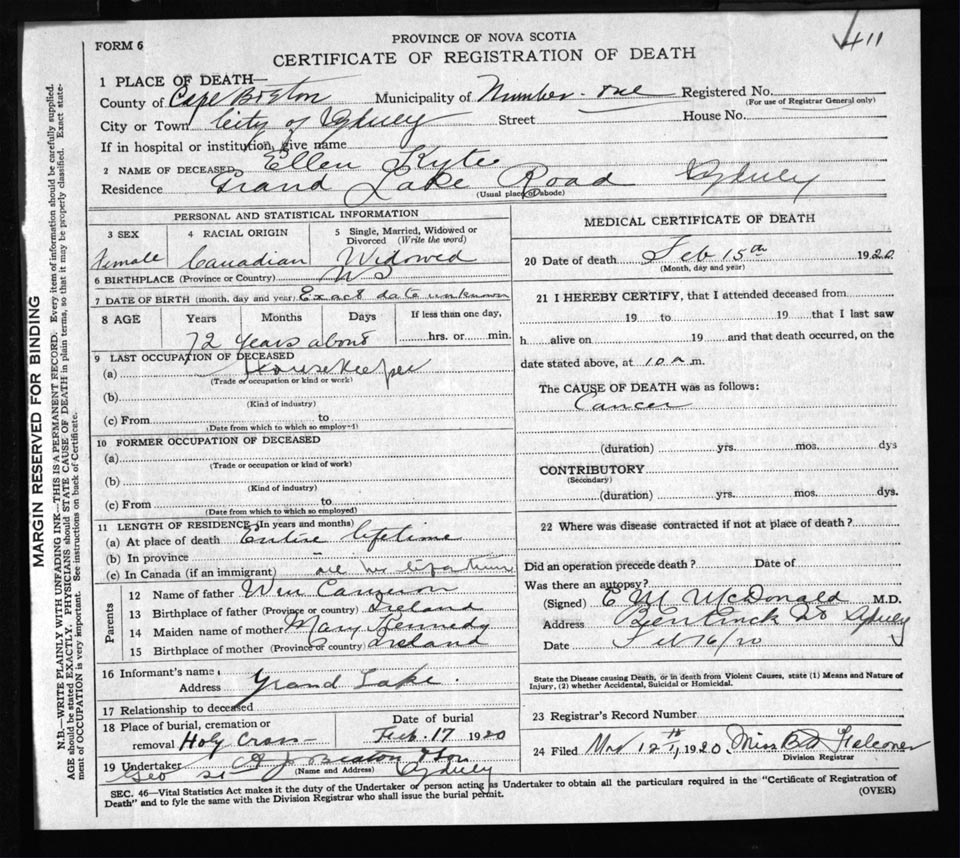 411
FORM 6
PROVINCE OF NOVA SCOTIA
CERTIFICATE OF REGISTRATION OF DEATH
1 PLACE OF DEATH—
County of Cape Breton Municipality of Number one Registered No.
(For use of Registrar General only)
City or Town City of Sydney Street House No.
If in hospital or institution, give name
2 NAME OF DECEASED Ellen Kyte
Residence Grand Lake Road Sydney
(Usual place of abode)
PERSONAL AND STATISTICAL INFORMATION
3 SEX 4 RACIAL ORIGIN 5 Single, Married, Widowed or Divorced (Write the word)
Female Canadian Widowed
6 BIRTHPLACE (Province or Country) NS
7 DATE OF BIRTH (month, day and year) Exact date unknown
8 AGE Years Months Days If less than one day,
hrs. or min.
72 years about
9 LAST OCCUPATION OF DECEASED
(a) Housekeeper
(Trade or occupation or kind or work)
(b)
(Kind of industry)
(c) From to
(Date from which to which so employ—)
10 FORMER OCCUPATION OF DECEASED
(a)
(Trade or occupation or kind of work)
(b)
(Kind of industry)
(c) From to
(Date from which to which so employed)
11 LENGTH OF RESIDENCE (In years and months)
(a) At place of death Entire lifetime
(b) In province
(c) In Canada (if an immigrant)
Parents
12 Name of father Wm Cameron
13 Birthplace of father (Province or country) Ireland
14 Maiden name of mother Mary Kennedy
15 Birthplace of mother (Province or country) Ireland
16 Informant's name
Address Grand Lake.
17 Relationship to deceased
18 Place of burial, cremation or removal Holy Cross
Date of burial Feb. 17 1920
19 Undertaker A J Beaton
(Name and Address)
Geo St Sydney
MEDICAL CERTIFICATE OF DEATH
20 Date of death Feb 15th 1920
(Month, day and year)
21 I HEREBY CERTIFY, that I attended deceased from
19 to 19 that I last saw
h alive on 19 and that death occurred, on the
date stated above, at 10 A.m.
The CAUSE OF DEATH was as follows:
Cancer
(duration) yrs. mos. dys
CONTRIBUTORY
(Secondary)
(duration) yrs. mos. dys.
22 Where was disease contracted if not at place of death?
Did an operation precede death? Date of
Was there an autopsy?
(Signed) E M McDonald M.D.
Address Bentinck St Sydney
Date Feb 16/20
State the Disease causing Death, or in death from Violent Causes, state (1) Means and Nature of
Injury, (2) whether Accidental, Suicidal or Homicidal.
23 Registrar's Record Number
24 Filed Mar 12th, 1920. Miss Falconer
Division Registrar
SEC. 46—Vital Statistics Act makes it the duty of the Undertaker or person acting as Undertaker to obtain all the particulars required in the "Certificate of Registration of
Death" and to fyle the same with the Division Registrar who shall issue the burial permit.
(OVER)
MARGIN RESERVED FOR BINDING
N.B.—WRITE PLAINLY WITH UNFADING INK—THIS IS A PERMANENT RECORD. Every item of information should be carefully supplied.
AGE should be stated EXACTLY. PHYSICIANS should STATE CAUSE OF DEATH in plain terms, so that it may be properly classified. Exact state-
ment of OCCUPATION is very important. See instructions on back of Certificate.